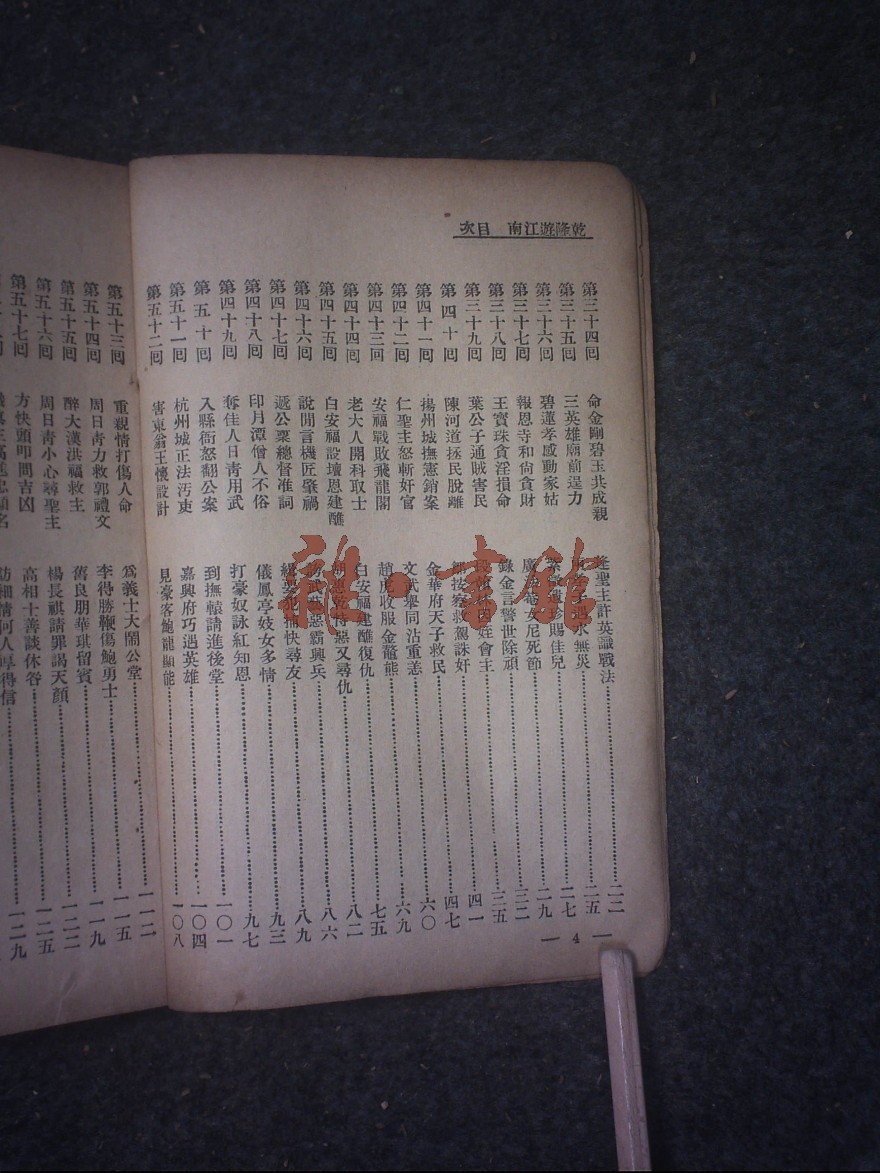 乾隆遊江南 目次
第三十四回 命金剛碧玉共成親 逢聖主許英識戰法 二二
第三十五回 三英雄廟前逞力 子遇水無災 二五
第三十六回 碧蓮孝感動家姑 珍賜佳兒 二七
第三十七回 報恩寺和尙貪財 廣菴女尼死節 二九
第三十八回 王寶珠貪淫損命 錄金言警世除頑 三二
第三十九回 葉公子通賊害民 姪會主 三五
第四十回 陳河道拯民脫離 按察救駕誅奸 四一
第四十一回 揚州城撫憲銷案 金華府天子救民 四七
第四十二回 仁聖主怒斬奸官 文武舉同沾重恙 六〇
第四十三回 安福戰敗飛龍閣 趙虎收服金鼇熊 六九
第四十四回 老大人開科取士 白安福建醮復仇 七五
第四十五回 白安福設壇恩建醮 胡惠乾恃惡又尋仇 八二
第四十六回 說閒言機匠肇禍 武藝惡霸興兵 八六
第四十七回 遞公稟總督准詞 緝要犯捕快尋友 八九
第四十八回 印月潭僧人不俗 儀鳳亭妓女多情 九三
第四十九回 奪佳人日靑用武 打豪奴詠紅知恩 九七
第五十回 入縣衙怒翻公案 到撫轅請進後堂 一〇一
第五十一回 杭州城正法汚吏 嘉興府巧遇英雄 一〇四
第五十二回 害東翁王懷設計 見豪客鮑龍顯能 一〇八
— 4 —
第五十三回 重親情打傷人命 爲義士大鬧公堂 一一二
第五十四回 周日靑力救郭禮文 李得勝鞭傷鮑勇士 一一五
第五十五回 醉大漢洪福救主 舊良朋華琪留賓 一一九
第五十六回 周日靑小心尋聖主 楊長祺請罪謁天顏 一二二
第五十七回 方快頭叩問吉凶 高相士善談休咎 一二五
訪細情何人厚得信 一二九
雜·書館